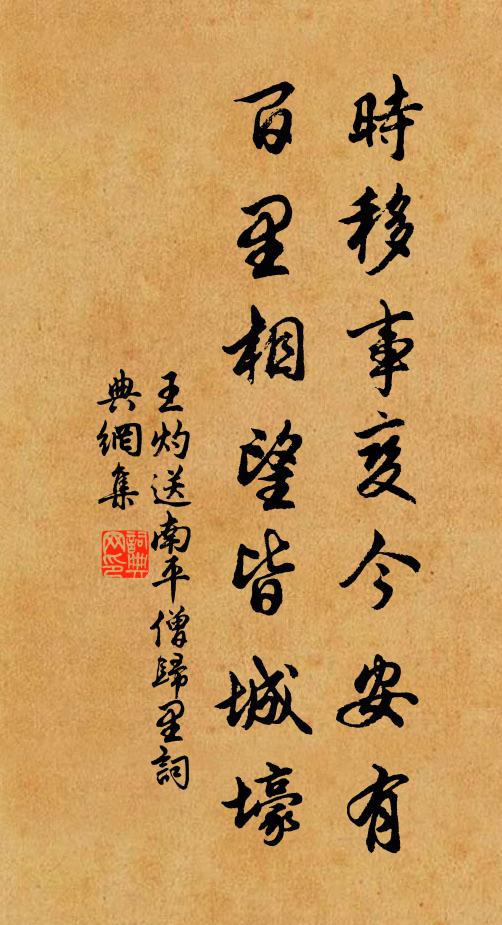 時移事变今安有
百里相望皆城壕
王灼送南平僧歸里詞
典網集
詞典
网印